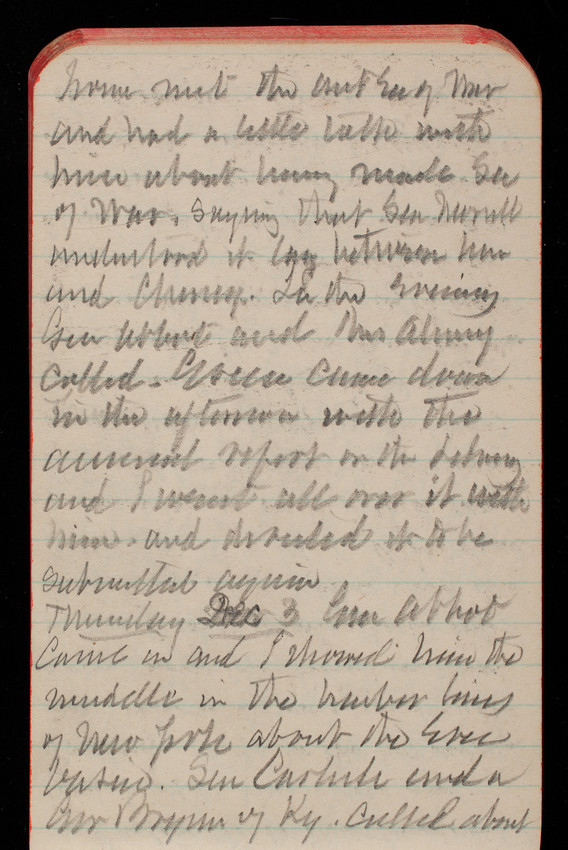 home met the Asst Sec of War
and had a little talk with
him about being made Sec
of War, saying that Gen
understood it lay between him
and Cheney. In the evening
Gen Abbot and Mrs
called. Green came down
in the afternoon with the
annual report on the
and I went all over it with
him and decided it to be
submitted again
Thursday Dec 3 Gen Abbot
came in and I showed him the
muddle in the harbor lines
of New York about the Erie
basin. Sen Carlisle and a
of Ky. called about